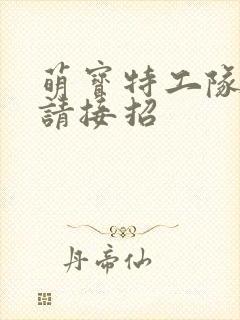 萌寶特工隊
請接招
丹帝仙